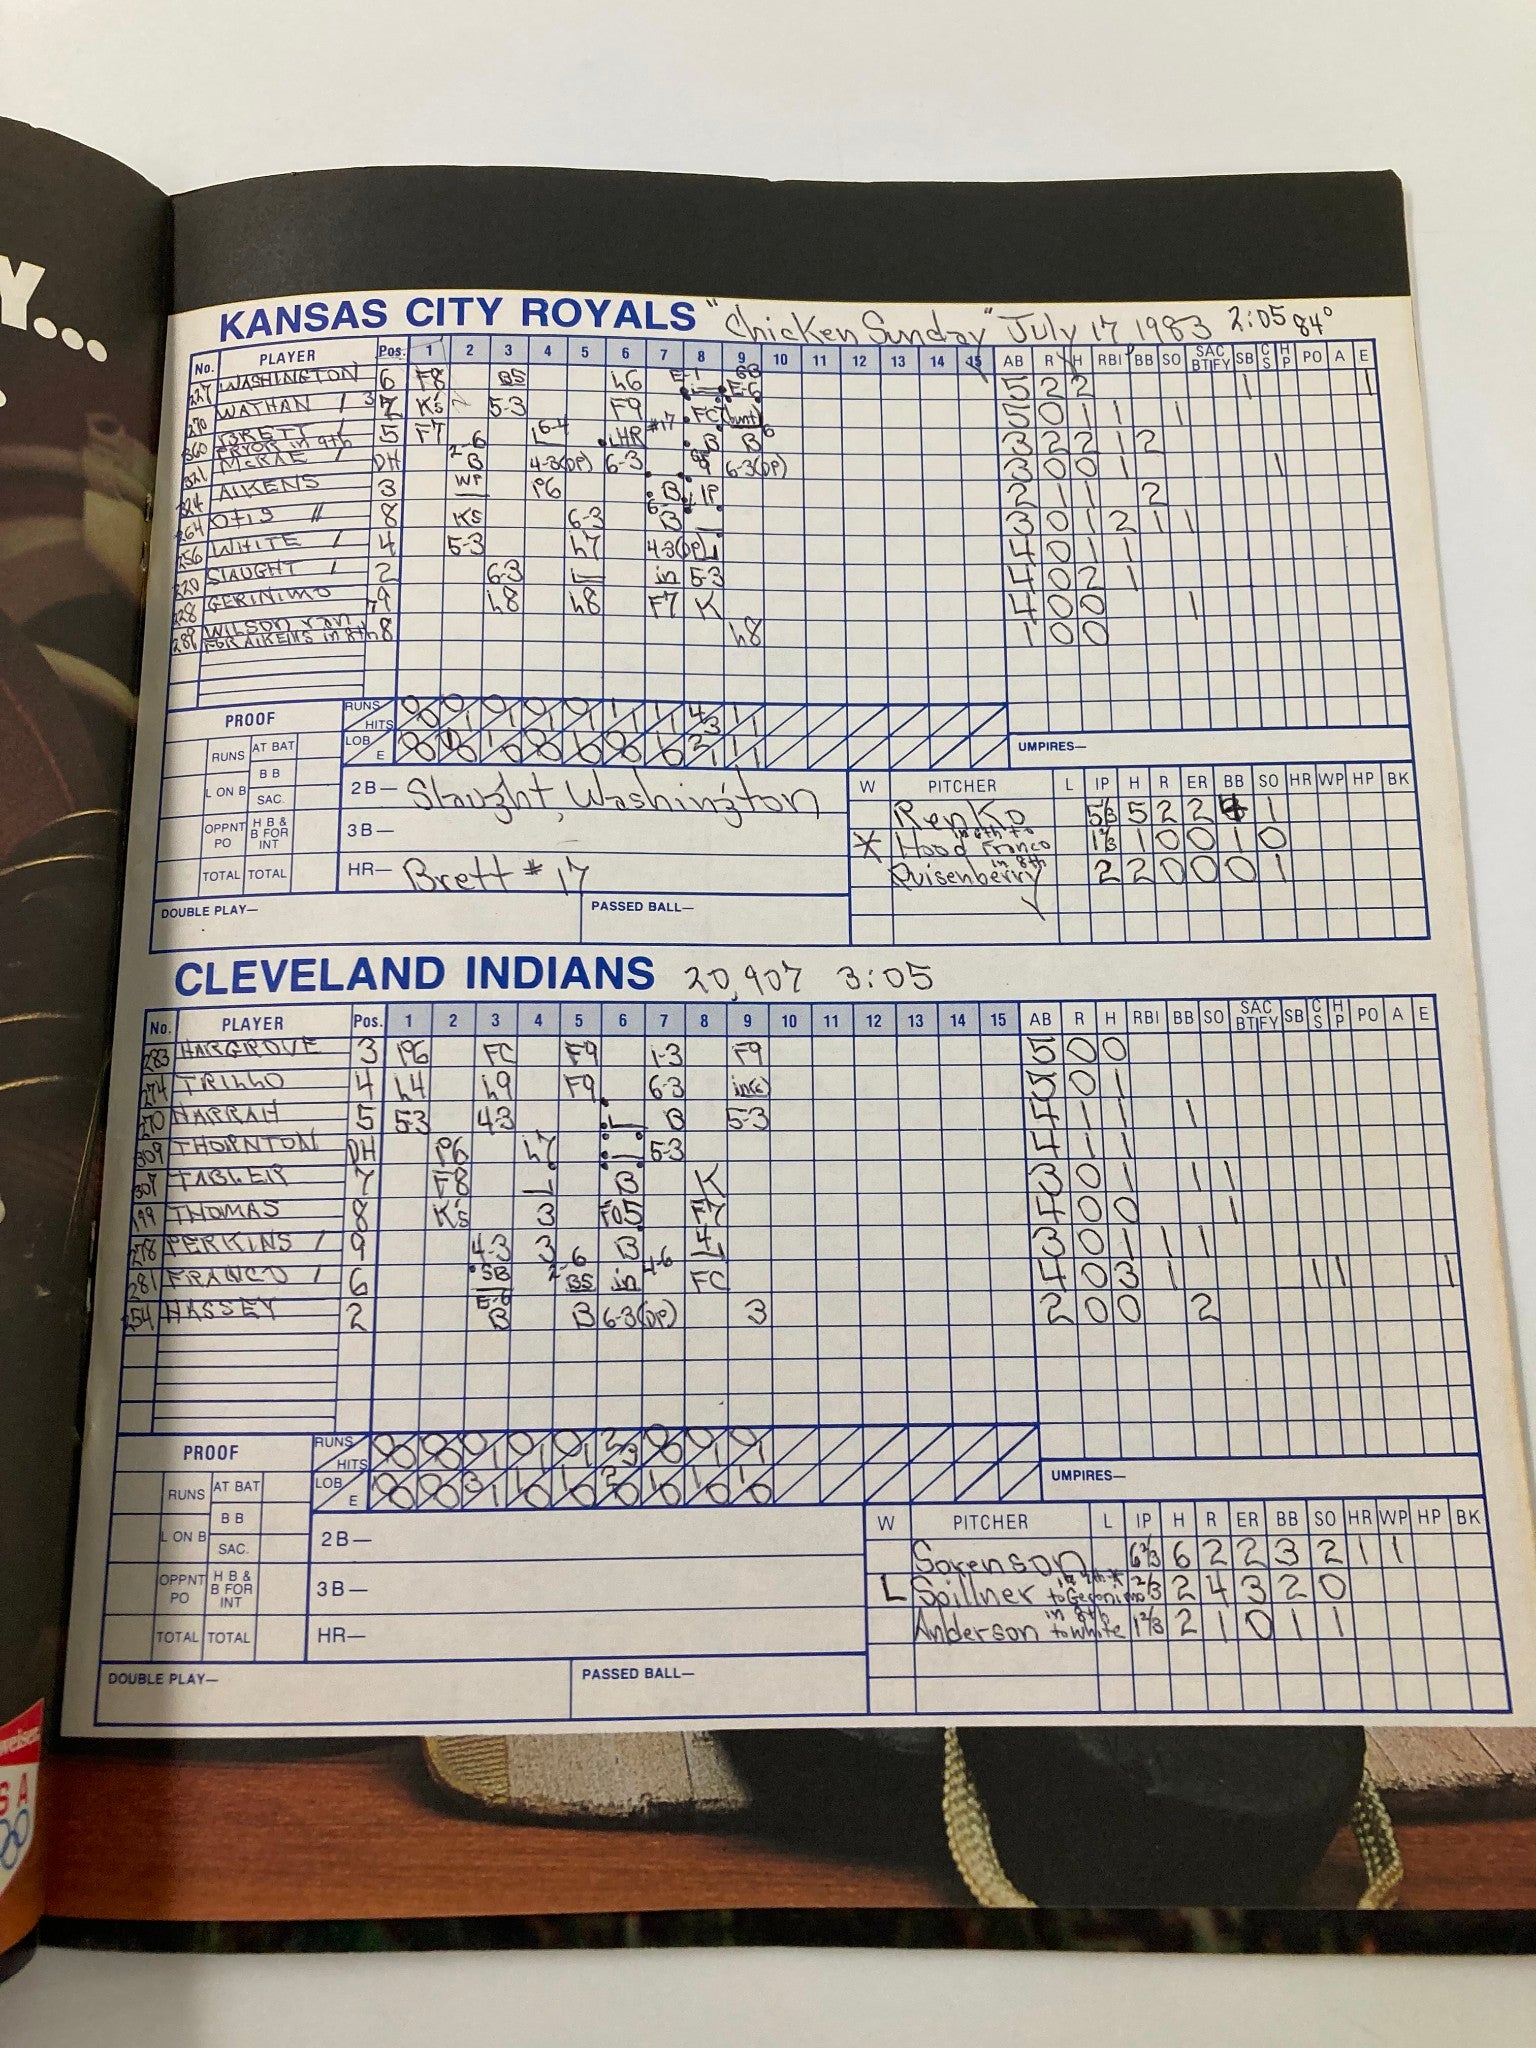 Y...
KANSAS CITY ROYALS "Chicken Sunday" July 17 1983 2:05 84°
No. PLAYER Pos. 1 2 3 4 5 6 7 8 9 10 11 12 13 14 15 AB R H RBI BB SO SAC BT FY SB CS HP PO A E
227 WASHINGTON 6 F8 BS L6 E-1 E-6 5 2 2 1 1
270 WATHAN 3 7 K's 5-3 F9 FC (bunt) 5 0 1 1 1
360 BRETT 5 F7 L 6-4 HR #17 B B 3 2 2 1 2
PRYOR in 9th
321 McRAE DH 2-6 B 4-3(DP) 6-3 6-3(DP) 3 0 0 1 1
324 AIKENS 3 WP P6 B 1P 2 1 1 2
264 OTIS 8 Ks 6-3 B 3 0 1 2 1 1
256 WHITE 4 5-3 L7 4-3(DP) 4 0 1 1
220 SLAUGHT 2 6-3 in 5-3 4 0 2 1
228 GERINIMO 9 L8 L8 F7 K 4 0 0 1
289 WILSON ran 8 L8 1 0 0
FOR AIKENS in 8th
PROOF RUNS 0 0 0 0 0 1 1 4 1
HITS 0 1 1 1 1 1 1 3 1
RUNS AT BAT LOB 0 1 0 1 0 1 2 1
E 0 0 0 0 0 0 0 1 1
UMPIRES—
B B
L ON B SAC.
OPPNT PO H B & B FOR INT
TOTAL TOTAL
2B— Slaught, Washington
3B—
HR— Brett #17
DOUBLE PLAY— PASSED BALL—
W PITCHER L IP H R ER BB SO HR WP HP BK
Renko 5⅓ 5 2 2 4 1
* Hood in 6th to Franco 1⅔ 1 0 0 1 0
Quisenberry in 8th 2 2 0 0 0 1
CLEVELAND INDIANS 20,907 3:05
No. PLAYER Pos. 1 2 3 4 5 6 7 8 9 10 11 12 13 14 15 AB R H RBI BB SO SAC BT FY SB CS HP PO A E
283 HARGROVE 3 P6 FC F9 1-3 F9 5 0 0
274 TRILLO 4 L4 L9 F9 6-3 in(c) 5 0 1
270 HARRAH 5 5-3 4-3 L B 5-3 4 1 1 1
309 THORNTON DH P6 L7 5-3 4 1 1
307 TABLER 7 F8 B K 3 0 1 1 1
199 THOMAS 8 K's 3 F05 F7 4 0 0 1
278 PERKINS 9 4-3 3 B 4 3 0 1 1 1
281 FRANCO 6 SB 2-6 BS in 4-6 FC 4 0 3 1 1 1 1
254 HASSEY 2 E-6 B B 6-3(DP) 3 2 0 0 2
PROOF RUNS 0 0 0 0 0 2 0 0 0
HITS 0 0 1 1 1 3 0 1 1
RUNS AT BAT LOB 0 0 3 1 1 2 1 1 1
E 0 0 1 0 0 0 0 0 0
UMPIRES—
B B
L ON B SAC.
OPPNT PO H B & B FOR INT
TOTAL TOTAL
2B—
3B—
HR—
DOUBLE PLAY— PASSED BALL—
W PITCHER L IP H R ER BB SO HR WP HP BK
Sorenson 6⅔ 6 2 2 3 2 1 1
L Spillner in 7th to Geronimo ⅔ 2 4 3 2 0
Anderson in 8th to White 1⅔ 2 1 0 1 1